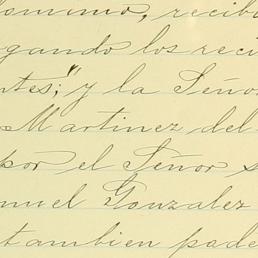 dominio, recibo
gando los reci
ntes;" y la Señor
Martinez del
por el Señor s
nuel Gonzalez
tambien pade